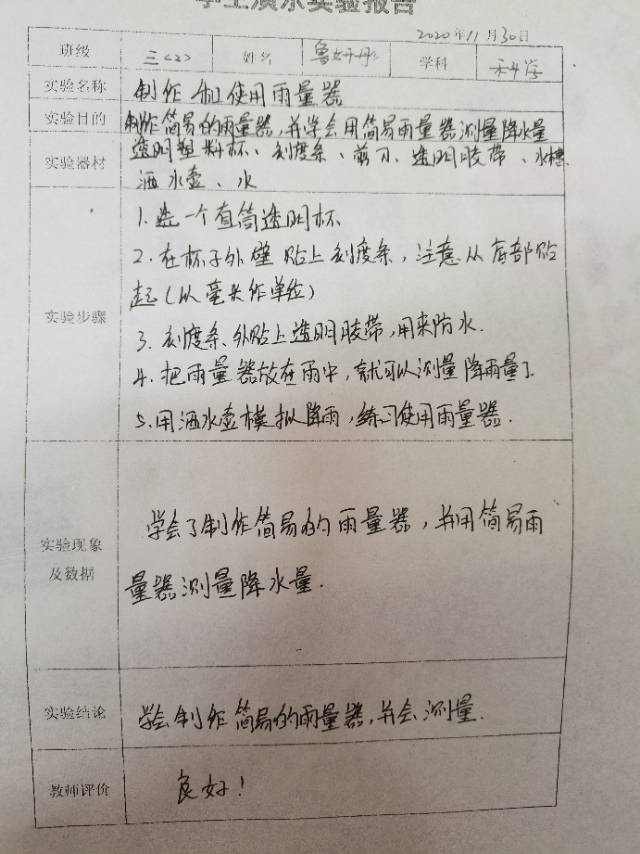 学生演示实验报告
2020年11月30日
班级 三<2> 姓名 学科 科学
实验名称 制作和使用雨量器
实验目的 制作简易的雨量器,并学会用简易雨量器测量降水量
实验器材 透明塑料杯、刻度条、剪刀、透明胶带、水槽
洒水壶、水
实验步骤
1.选一个直筒透明杯
2.在杯子外壁贴上刻度条,注意从底部贴
起(以毫米作单位)
3.刻度条外贴上透明胶带,用来防水.
4.把雨量器放在雨中,就可以测量降雨量了.
5.用洒水壶模拟降雨,练习使用雨量器.
实验现象
及数据
学会了制作简易的雨量器,并用简易雨
量器测量降水量.
实验结论 学会制作简易的雨量器,并会测量.
教师评价 良好!